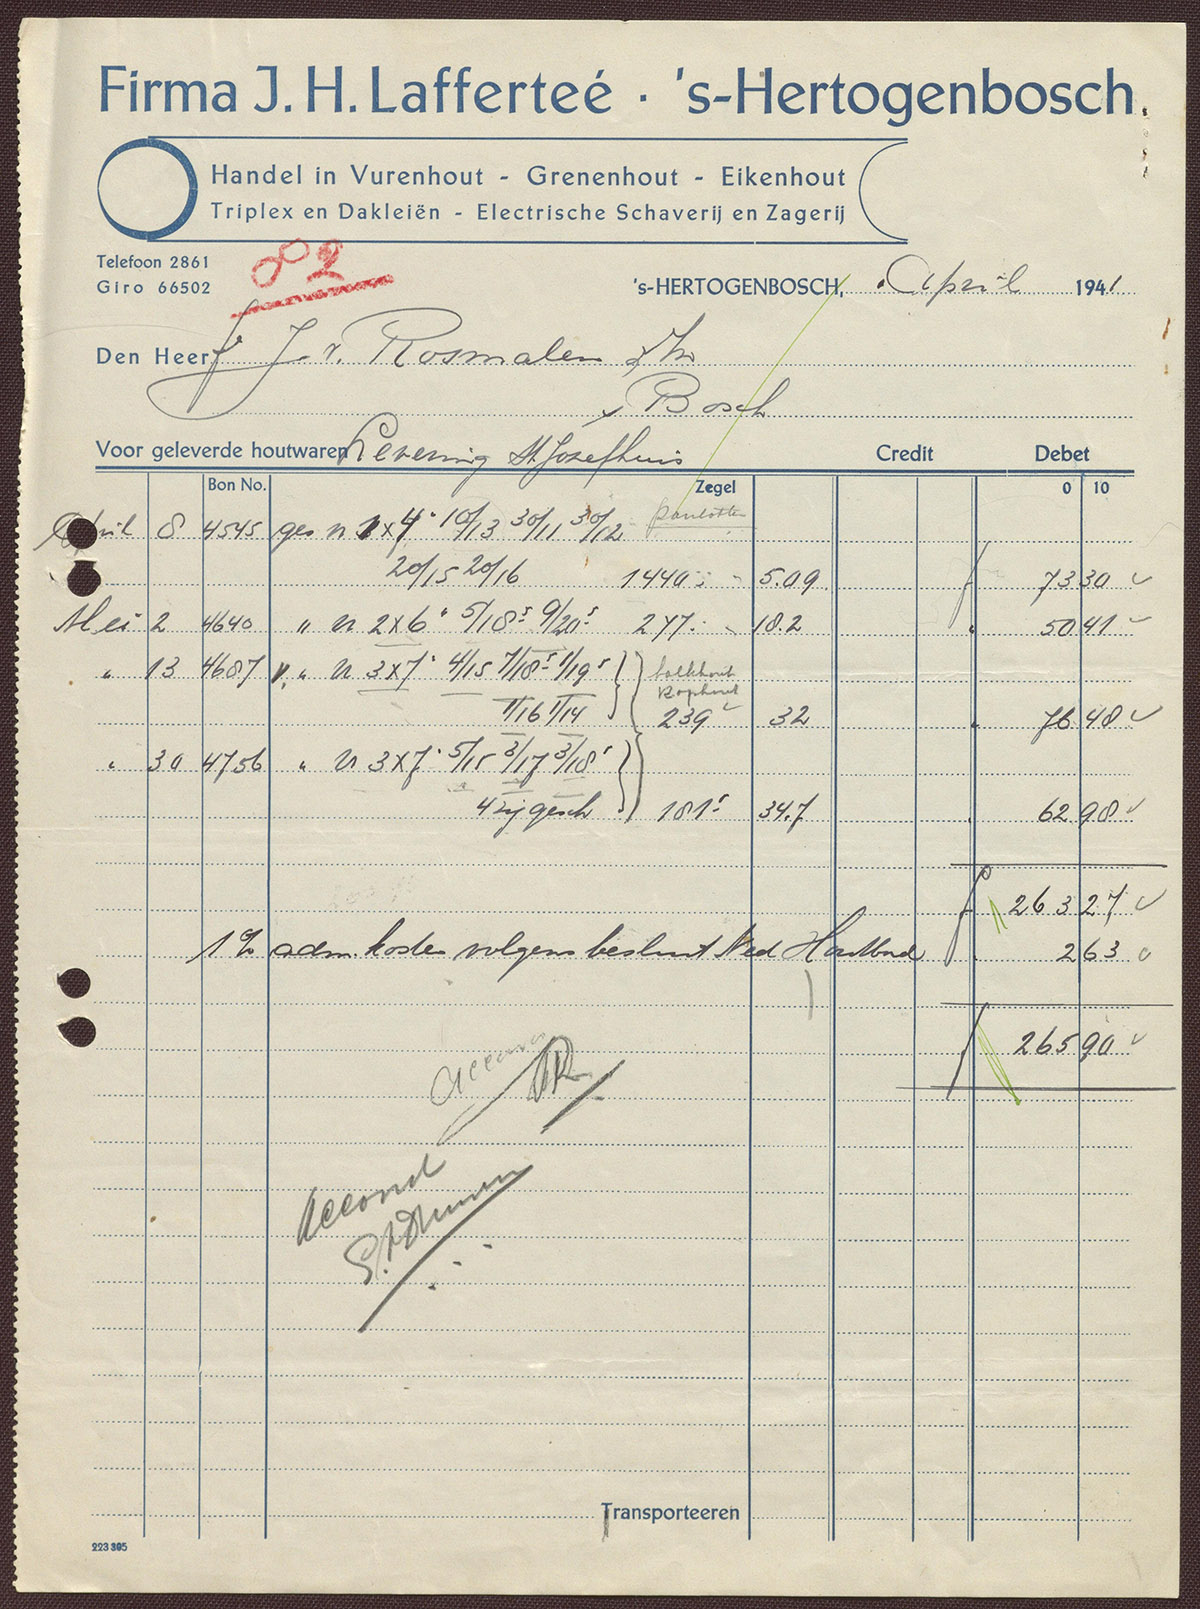 Firma J. H. Lafferteé · 's-Hertogenbosch.
Handel in Vurenhout - Grenenhout - Eikenhout
Triplex en Dakleiën - Electrische Schaverij en Zagerij
Telefoon 2861
Giro 66502
82
's-HERTOGENBOSCH, April 1941
Den Heer J. v. Rosmalen Zn
Bosch
Voor geleverde houtwaren Levering St Josefhuis Credit Debet
Bon No. Zegel 0 10
April 8 4545 ges n 1x4" 10/13 30/11 30/12
20/15 20/16 1440 5.09 f 73 30
Mei 2 4640 " n 2x6" 5/18⁵ 9/20⁵ 277 18.2 " 50 41
" 13 4687 " n 3x7" 4/15 7/18⁵ 1/19⁵
1/16 1/14 239 32 " 76 48
" 30 4756 " n 3x7" 5/15 3/17 3/18⁵
4 zij gesch 181⁵ 34.7 62 98
f 263 27
1% adm. kosten volgens besluit Ned Houtbond f 2 63
f 265 90
Accoord
Accoord
Transporteeren
223 395